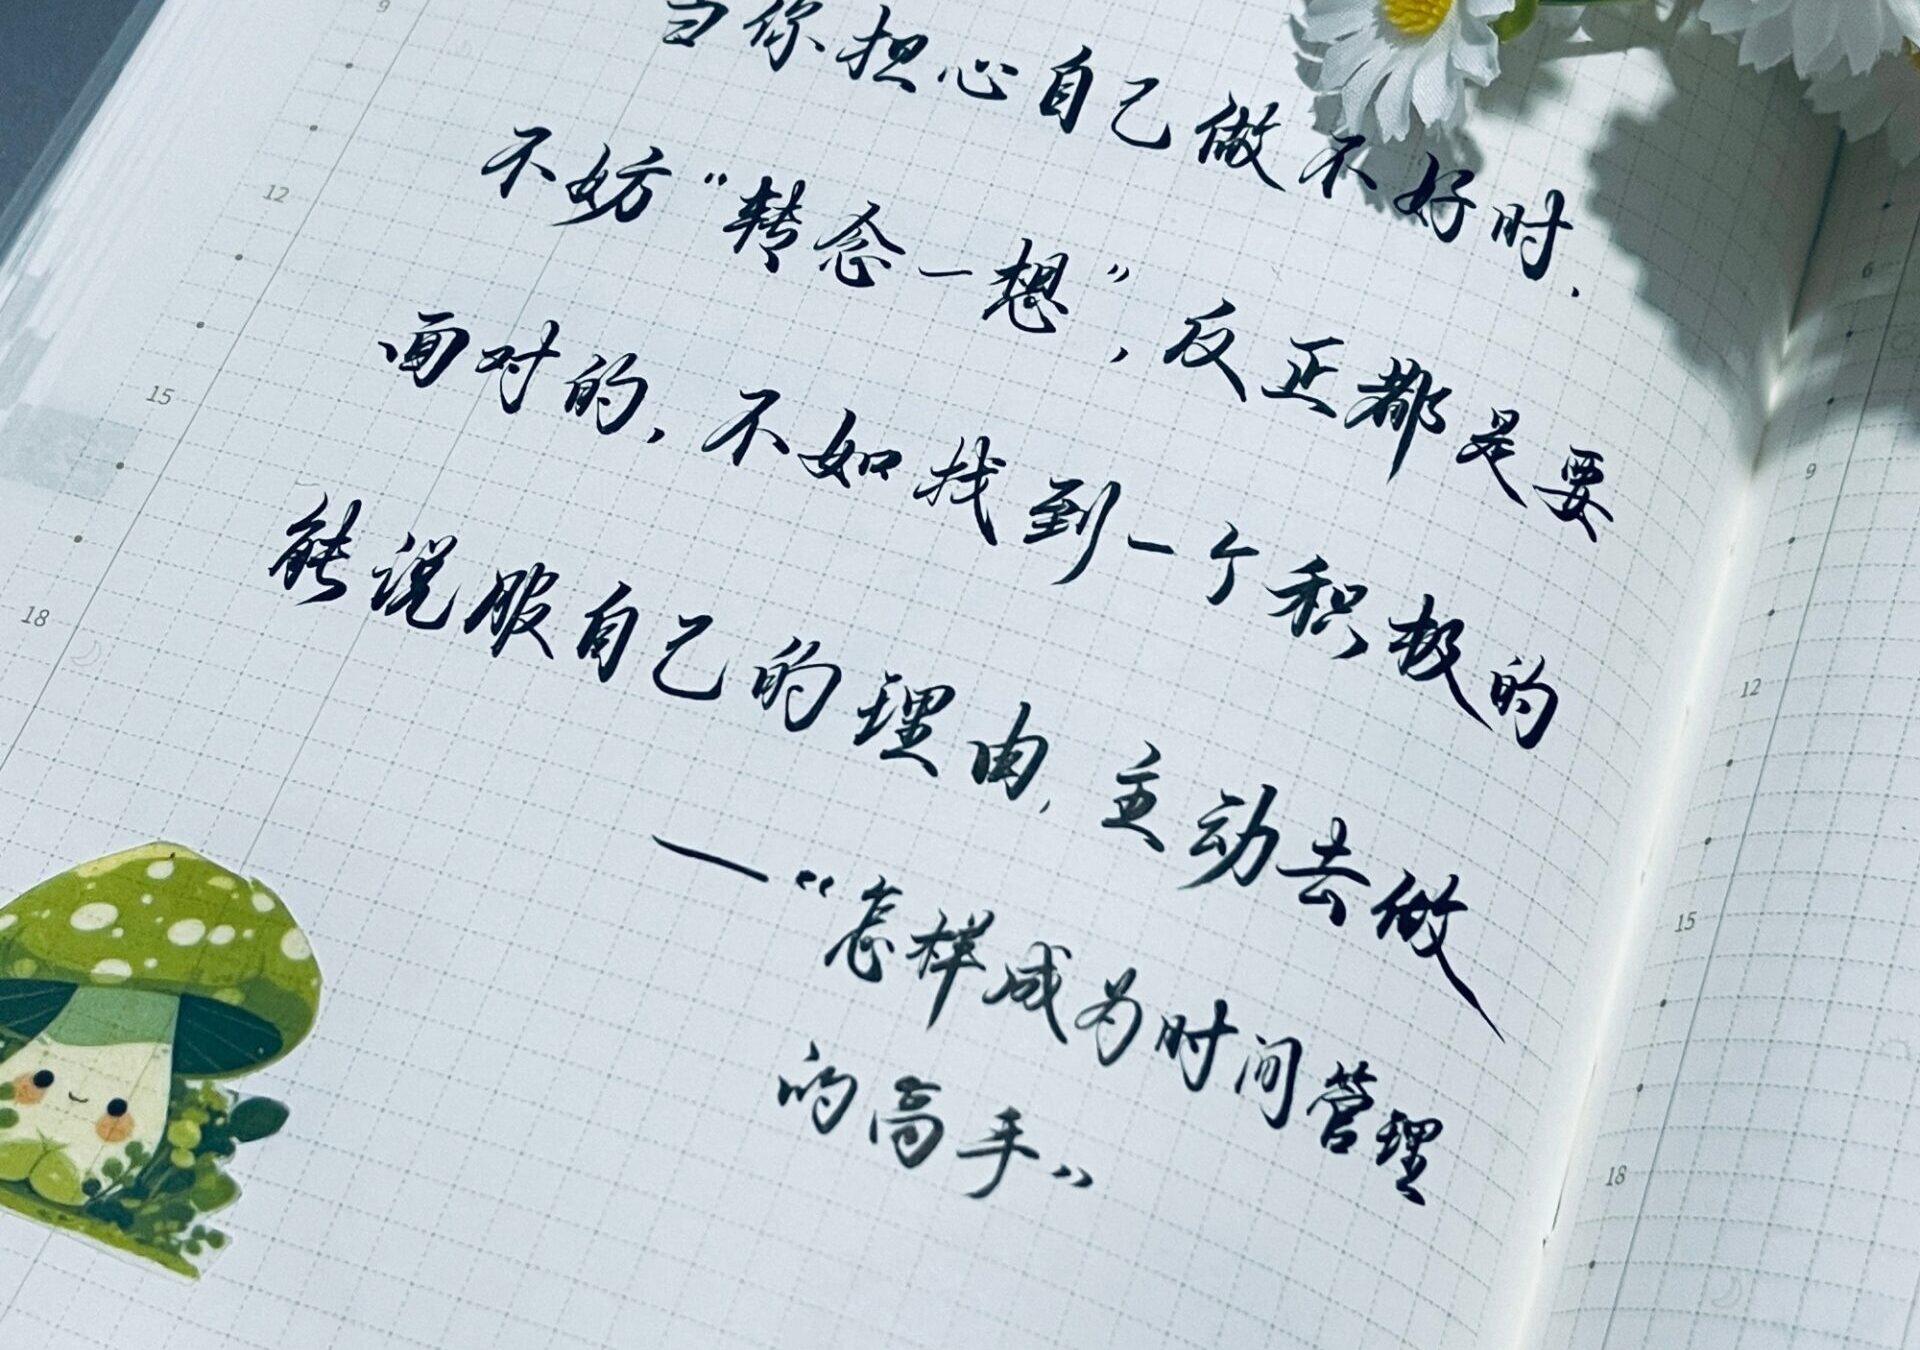 当你担心自己做不好时,
不妨“转念一想”,反正都是要
面对的,不如找到一个积极的
能说服自己的理由,主动去做
—“怎样成为时间管理
的高手”
9
12
15
18
6
9
12
15
18